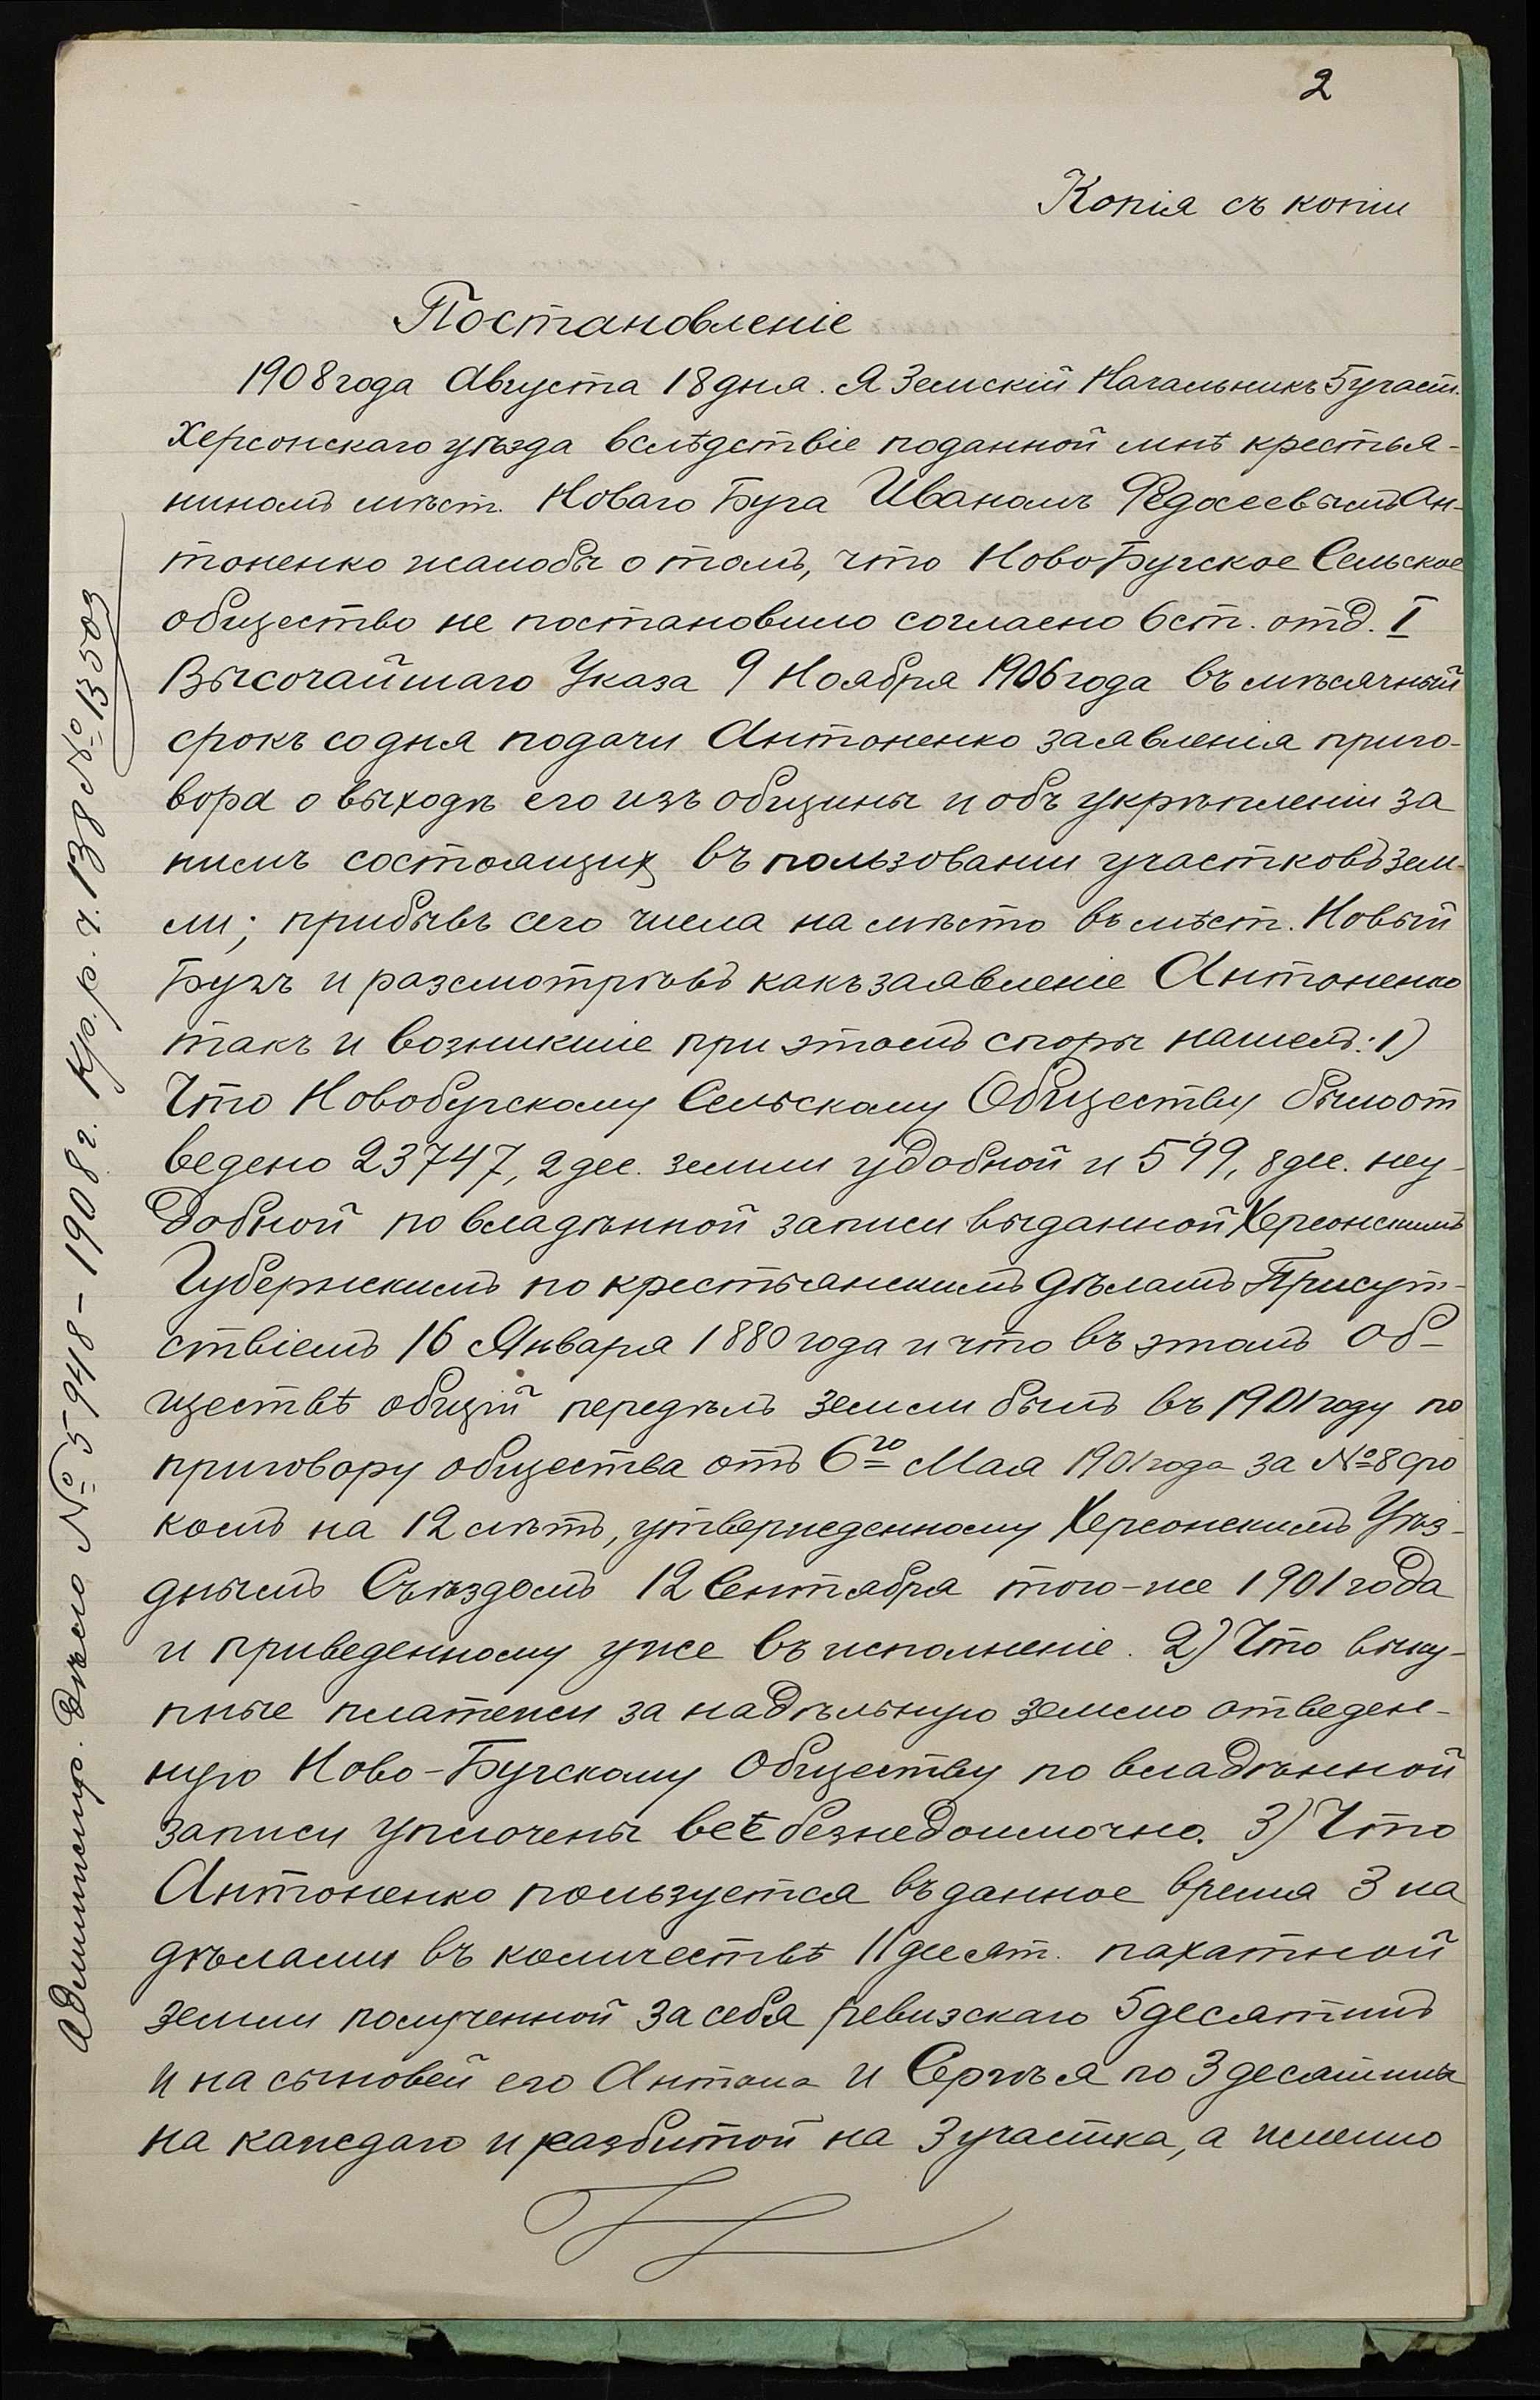 2
Копія съ копіи
Постановленіе
1908 года Августа 18 дня. Я Земскій Начальникъ 5 участ.
Херсонскаго уѣзда вслѣдствіе поданной мнѣ крестья-
ниномъ мѣст. Новаго Буга Иваномъ Ѳедосеевымъ Ан-
тоненко жалобы о томъ, что Ново-Бугское Сельское
общество не постановило согласно 6 ст. отд. I
Высочайшаго Указа 9 Ноября 1906 года въ мѣсячный
срокъ со дня подачи Антоненко заявленія приго-
вора о выходѣ его изъ общины и объ укрѣпленіи за
нимъ состоящих въ пользовании участковъ зем-
ли; прибывъ сего числа на мѣсто въ мѣст. Новый
Бугъ и разсмотрѣвъ какъ заявленіе Антоненко
такъ и возникшіе при этомъ споры нашелъ: 1)
Что Новобугскому Сельскому Обществу было от
ведено 23747,2 дес. земли удобной и 599,8 дес. неу-
добной по владѣнной записи выданной Херсонскимъ
Губернскимъ по крестьянскимъ дѣламъ Присут-
ствіемъ 16 Января 1880 года и что въ этомъ Об-
ществѣ общій передѣлъ земли былъ въ 1901 году по
приговору общества отъ 6го Мая 1901 года за № 8 сро
комъ на 12 лѣтъ, утвержденному Херсонскимъ Уѣз-
днымъ Съѣздомъ 12 Сентября того-же 1901 года
и приведенному уже въ исполненіе. 2) Что выку-
пные платежи за надѣльную землю отведен-
ную Ново-Бугскому Обществу по владѣнной
записи уплочены всѣ безнедоимочно. 3) Что
Антоненко пользуется въ данное время 3 на
дѣлами въ количествѣ 11 десят. пахатной
земли полученной за себя ревизскаго 5 десятинъ
и на сыновей его Антона и Сергѣя по 3 десятины
на каждаго и разбитой на 3 участка, а именно
Админисир. Дѣло № 5948-1908 г. Кр. р. ч. 138 № 13503